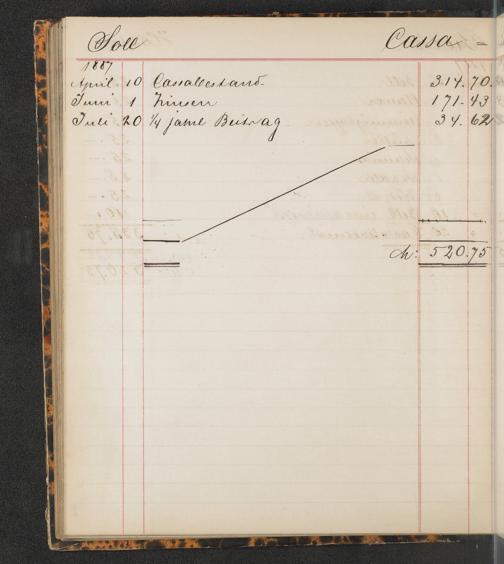 Soll Cassa =
1887
April 10 Cassabestand. 314.70.
Juni 1 Zinsen 171.43
Juli 20 ¼ jährl Beitrag 34.62
M: 520.75